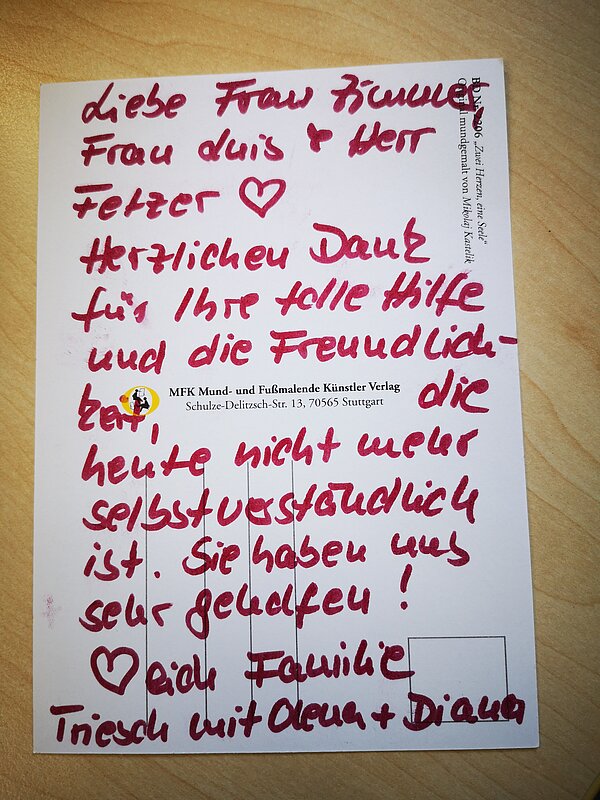 Liebe Frau Zimmer,
Frau Luis & Herr
Fetzer ♡
Herzlichen Dank
für Ihre tolle Hilfe
und die Freundlich-
keit, die
heute nicht mehr
selbstverständlich
ist. Sie haben uns
sehr geholfen!
♡lich Familie
Triesch mit Olena + Diana
MFK Mund- und Fußmalende Künstler Verlag
Schulze-Delitzsch-Str. 13, 70565 Stuttgart
206 „Zwei Herzen, eine Seele“
mundgemalt von Mikolaj Kastelik